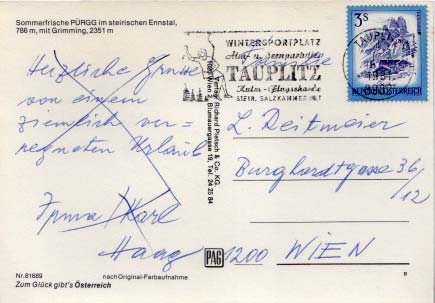 Sommerfrische PÜRGG im steirischen Ennstal,
786 m, mit Grimming, 2351 m
Herzliche Grüße
von einem
ziemlich ver-
regneten Urlaub
Irma/Karl
Haag
Nr.81689
nach Original-Farbaufnahme
Zum Glück gibt's Österreich
WINTERSPORTPLATZ
Alm- u. Seenparadies
TAUPLITZ
Kulm-Flugschanze
STEIR. SALZKAMMERGUT
3S
TAUPLITZ
REPUBLIK
ÖSTERREICH
Verlag Richard Pietsch & Co. KG.
1090 Wien, Blumauergasse 19, Tel. 24 25 84
Fam.
L. Reitmeier
Burghardtgasse 36/
12
1200 WIEN
PAG
B